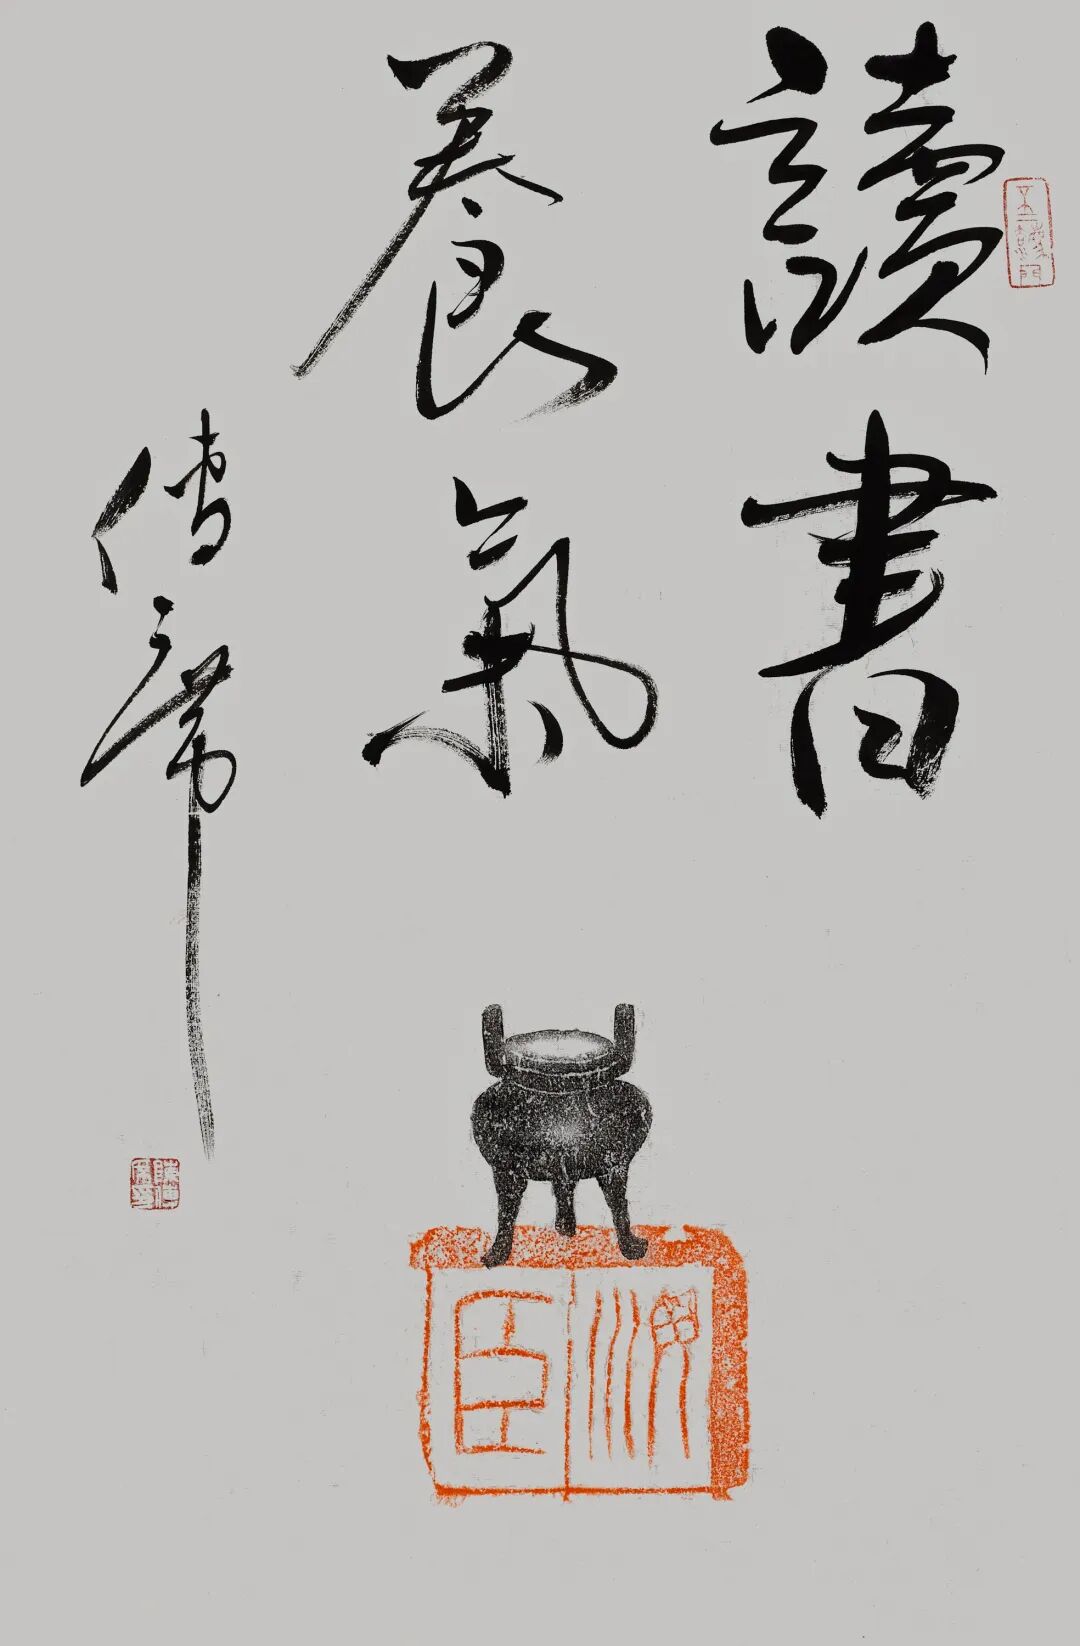 讀書
養氣
傳席